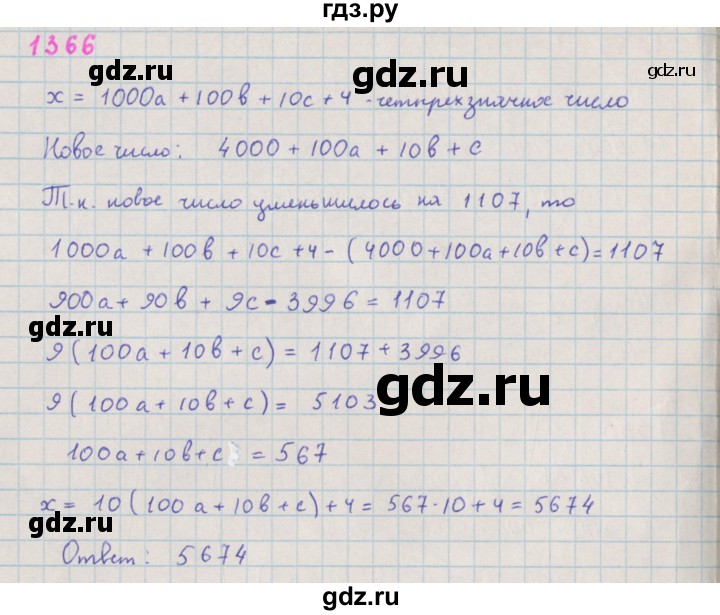 гдз.ру
1366
gdz.ru
gdz.ru
x = 1000a + 100в + 10c + 4 - четырехзначное число
Новое число: 4000 + 100a + 10в + c
Т.к. новое число уменьшилось на 1107, то
1000a + 100в + 10c + 4 - (4000 + 100a + 10в + c) = 1107
900a + 90в + 9c - 3996 = 1107
gdz.ru
9(100a + 10в + c) = 1107 + 3996
gdz.ru
9(100a + 10в + c) = 5103
100a + 10в + c = 567
x = 10(100a + 10в + c) + 4 = 567·10 + 4 = 5674
gdz.ru
gdz.ru
Ответ: 5674
gdz.ru